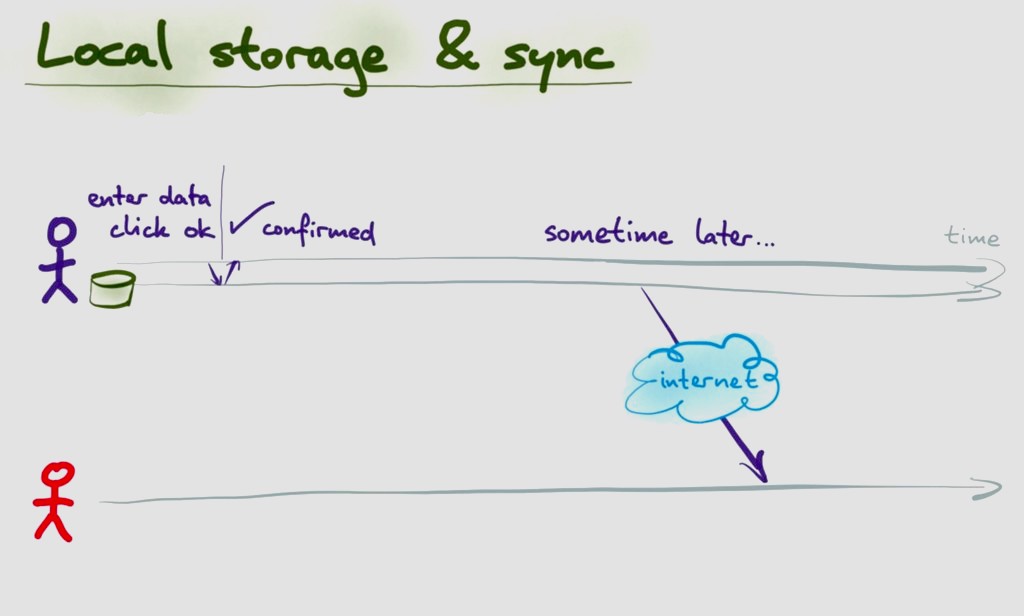 Local storage & sync
enter data
click ok ✓ confirmed
sometime later...
time
internet